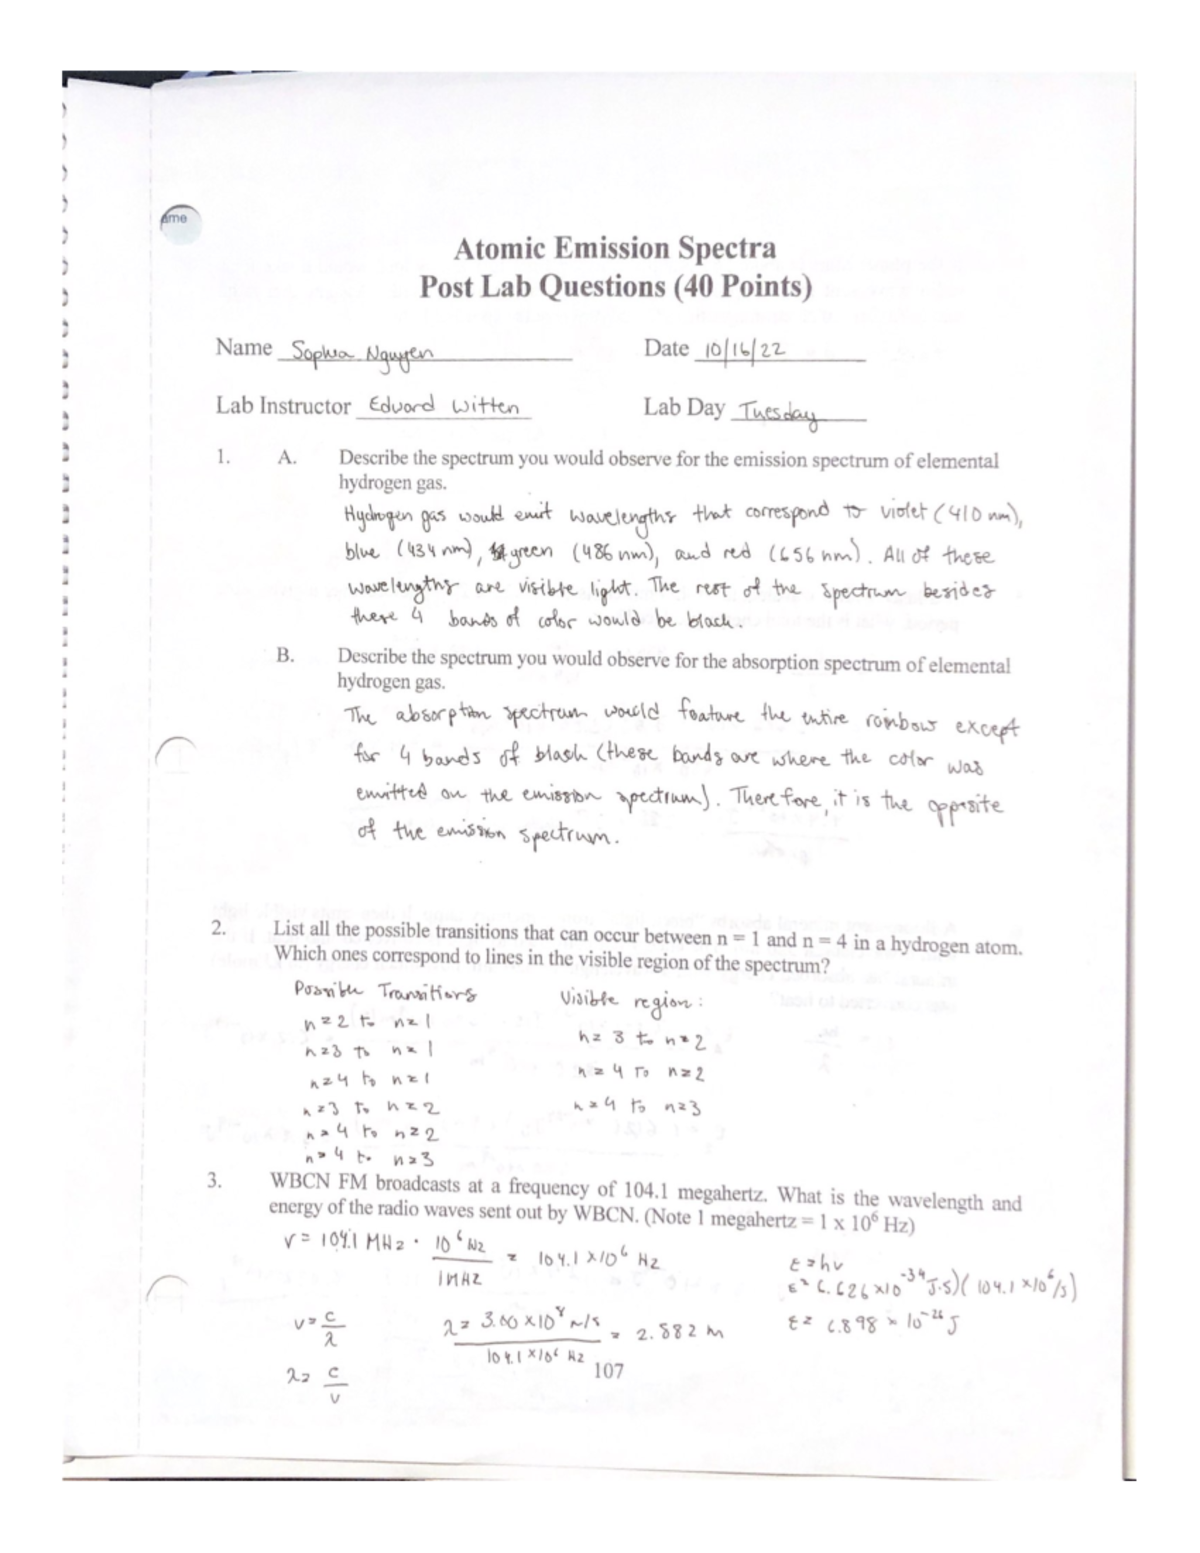 ame
Atomic Emission Spectra
Post Lab Questions (40 Points)
Name Sophia Nguyen Date 10/16/22
Lab Instructor Edward Witten Lab Day Tuesday
1. A. Describe the spectrum you would observe for the emission spectrum of elemental
hydrogen gas.
Hydrogen gas would emit wavelengths that correspond to violet (410 nm),
blue (434 nm), green (486 nm), and red (656 nm). All of these
wavelengths are visible light. The rest of the spectrum besides
these 4 bands of color would be black.
B. Describe the spectrum you would observe for the absorption spectrum of elemental
hydrogen gas.
The absorption spectrum would feature the entire rainbow except
for 4 bands of black (these bands are where the color was
emitted on the emission spectrum). Therefore, it is the opposite
of the emission spectrum.
2. List all the possible transitions that can occur between n = 1 and n = 4 in a hydrogen atom.
Which ones correspond to lines in the visible region of the spectrum?
Possible Transitions Visible region:
n=2 to n=1
n=3 to n=1 n=3 to n=2
n=4 to n=1 n=4 to n=2
n=3 to n=2 n=4 to n=3
n=4 to n=2
n=4 to n=3
3. WBCN FM broadcasts at a frequency of 104.1 megahertz. What is the wavelength and
energy of the radio waves sent out by WBCN. (Note 1 megahertz = 1 x 10⁶ Hz)
ν = 104.1 MHz · 10⁶ Hz / 1 MHz = 104.1 × 10⁶ Hz E = hν
E = 6.626 × 10⁻³⁴ J·s)(104.1 × 10⁶/s)
ν = c/λ λ = 3.00 × 10⁸ m/s / 104.1 × 10⁶ Hz = 2.882 m E = 6.898 × 10⁻²⁶ J
λ = c/ν
107